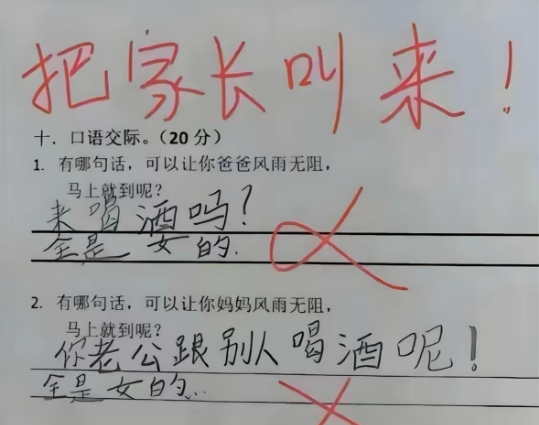 把家长叫来！
十．口语交际。（20分）
1. 有哪句话，可以让你爸爸风雨无阻，
马上就到呢？
来喝酒吗？
全是女的.
2. 有哪句话，可以让你妈妈风雨无阻，
马上就到呢？
你老公跟别人喝酒呢！
全是女的..